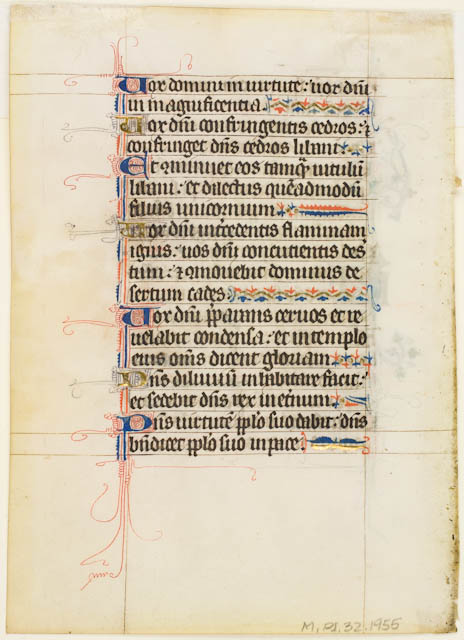 Uox domini in uirtute: uox dni
in magnificentia.
Uox dni confringentis cedros: ⁊
confringet dns cedros libani.
Et comminuet eos tamq̃ uitulũ
libani: et dilectus quẽadmodũ
filius unicornium.
Uox dni intercedentis flammam
ignis: uox dni concutientis des
tum: ⁊ comouebit dominus de
sertum cades.
Uox dni p̃parantis ceruos et re
uelabit condensa: et in templo
eius om̃s dicent gloriam.
Dñs diluuiũ inhabitare facit:
et sedebit dñs rex in et̃num.
Dñs uirtutẽ pp̃lo suo dabit: dñs
bñdicet pp̃lo suo in pace.
M.RI.32.1955